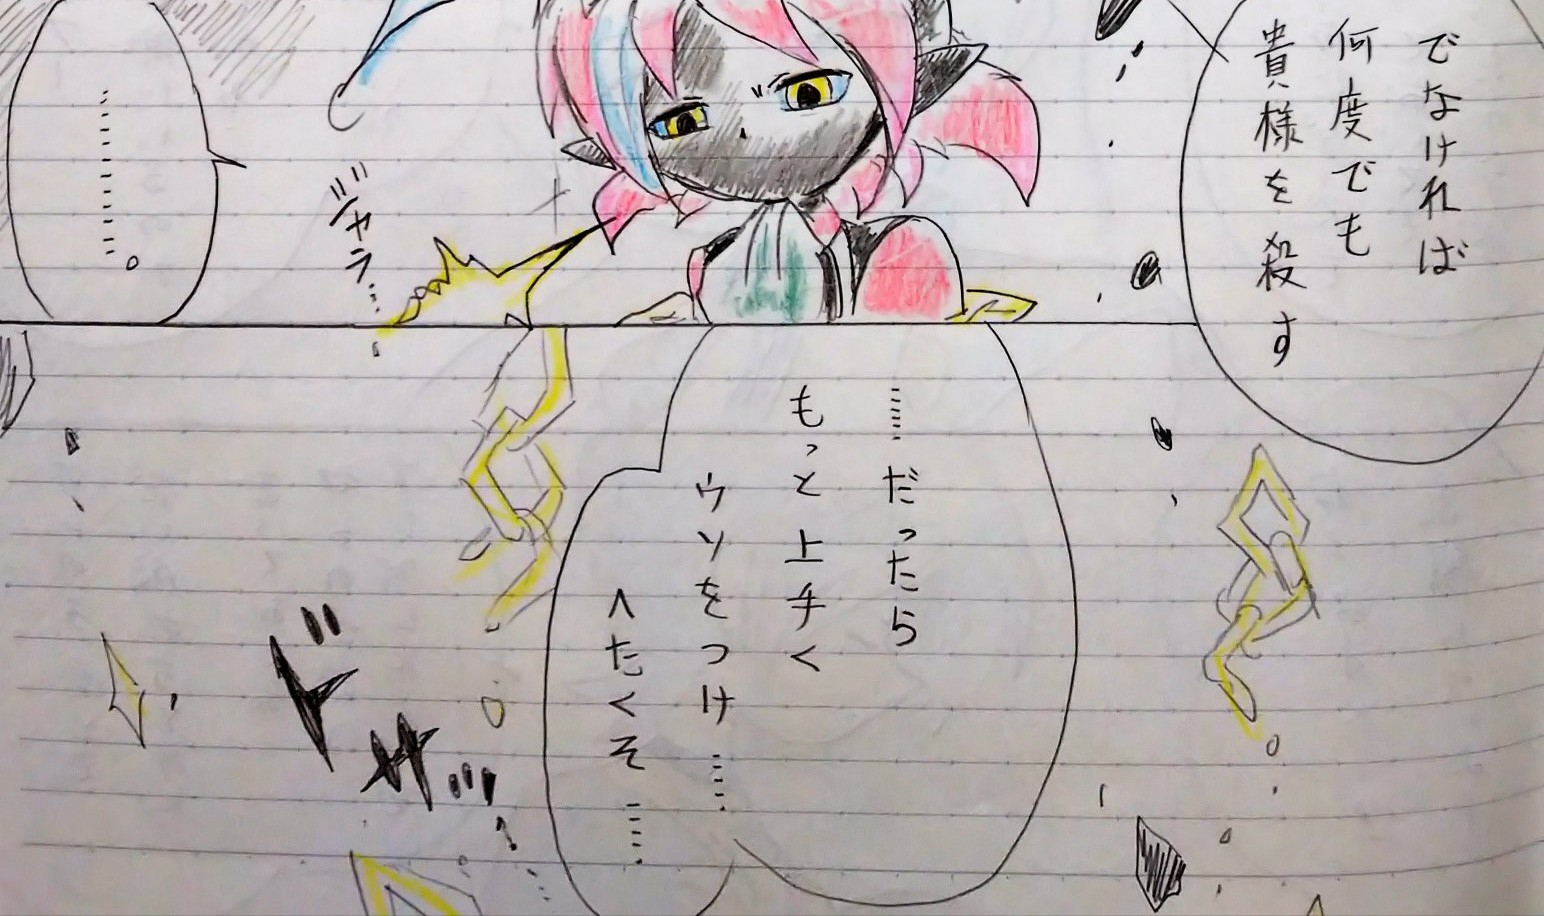 でなければ
何度でも
貴様を殺す
ジャラ……
………………。
……だったら
もっと上手く
ウソをつけ……
へたくそ……
ドサッ…